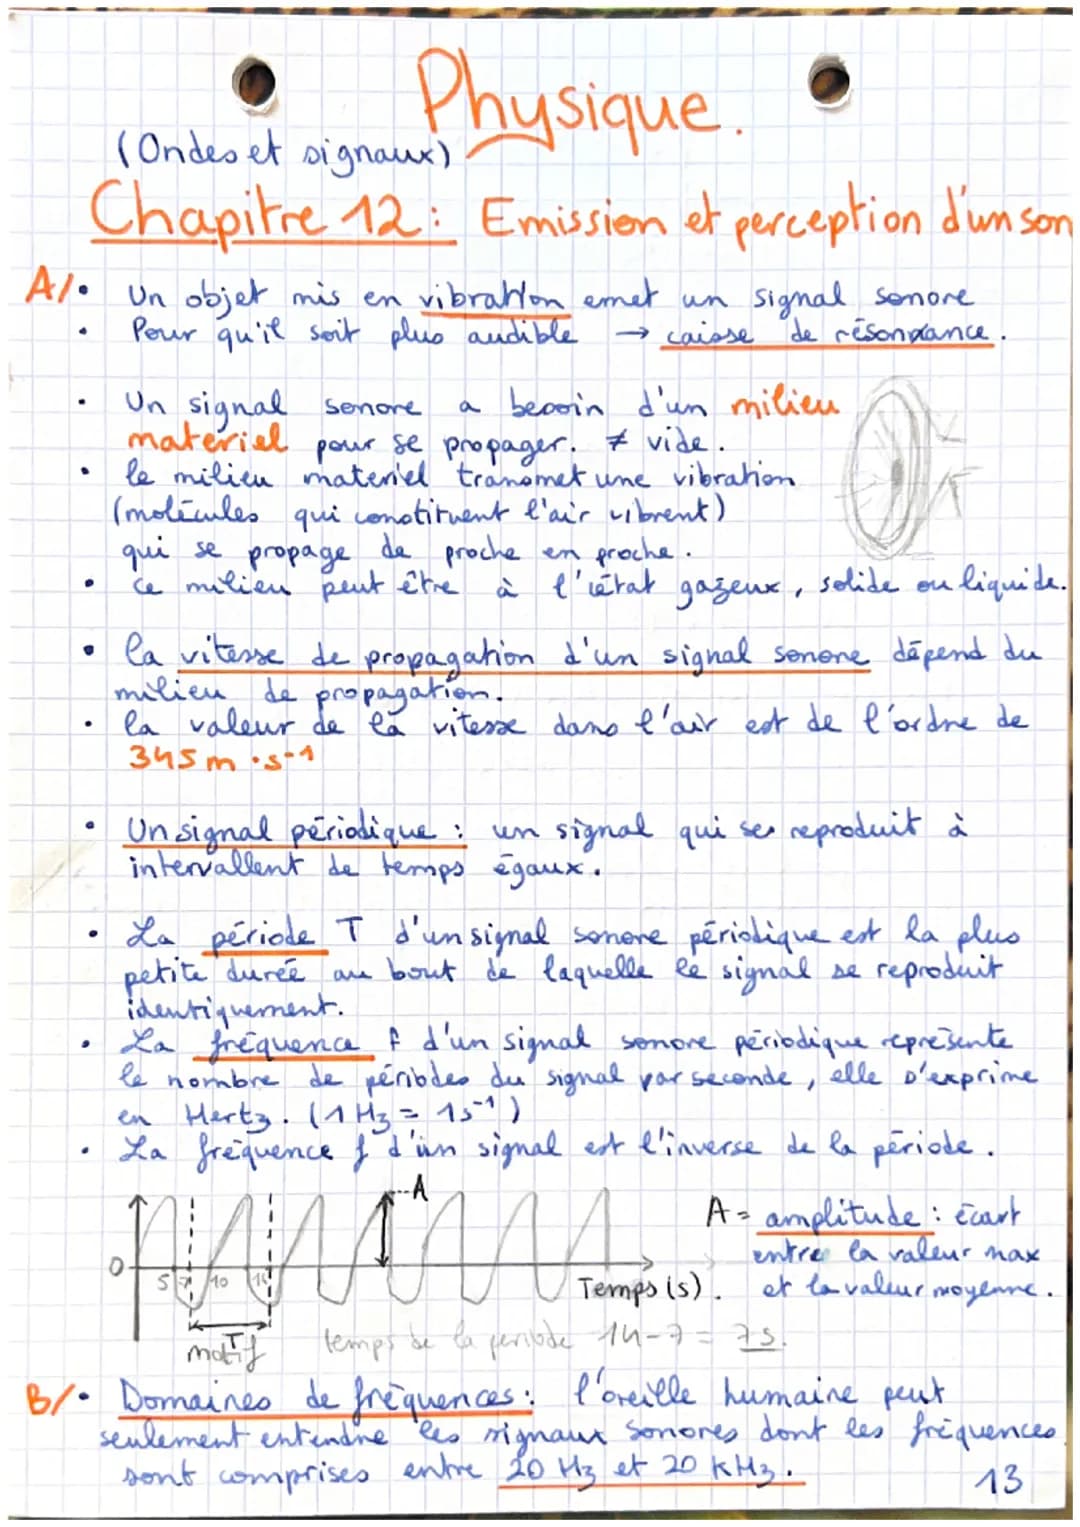 Physique.
(Ondes et signaux)
Chapitre 12 : Emission et perception d'un son
A/ • Un objet mis en vibration emet un signal sonore
• Pour qu'il soit plus audible → caisse de résonnance.
• Un signal sonore a besoin d'un milieu
materiel pour se propager. ≠ vide.
• le milieu materiel transmet une vibration
(molécules qui constituent l'air vibrent)
qui se propage de proche en proche.
• ce milieu peut être à l'état gazeux, solide ou liquide.
• la vitesse de propagation d'un signal sonore dépend du
milieu de propagation.
• la valeur de la vitesse dans l'air est de l'ordre de
345 m·s-1
• Un signal périodique : un signal qui se reproduit à
intervallent de temps égaux.
• La période T d'un signal sonore périodique est la plus
petite durée au bout de laquelle le signal se reproduit
identiquement.
• La fréquence f d'un signal sonore périodique représente
le nombre de périodes du signal par seconde, elle s'exprime
en Hertz. (1 Hz = 1s-1)
• La fréquence f d'un signal est l'inverse de la période.
A
A = amplitude : écart
entre la valeur max
et la valeur moyenne.
0 5 7 10 14
Temps (s).
T
motif
temps de la periode 14-7 = 7s.
B/ • Domaines de fréquences : l'oreille humaine peut
seulement entendre les signaux sonores dont les fréquences
sont comprises entre 20 Hz et 20 KHz.
13